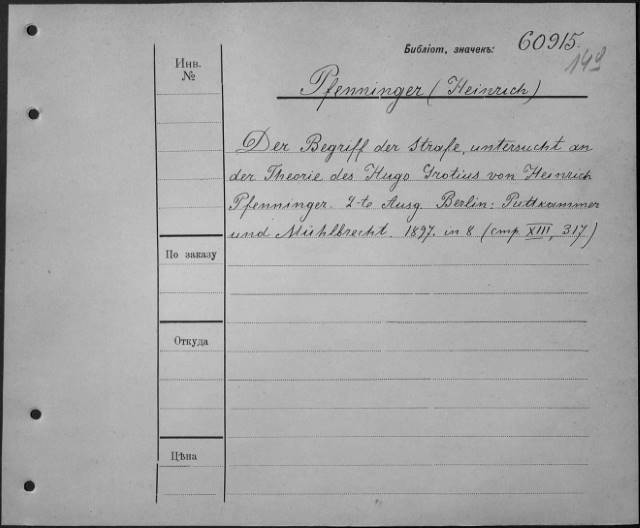 Библіот. значекъ: 60915.
149
Инв.
№
Pfenninger (Heinrich)
Der Begriff der Strafe, untersucht an
der Theorie des Hugo Grotius von Heinrich
Pfenninger. 2-te Ausg. Berlin: Puttkammer
und Mühlbrecht. 1897. in 8 (стр. XIII, 317)
По заказу
Откуда
Цѣна